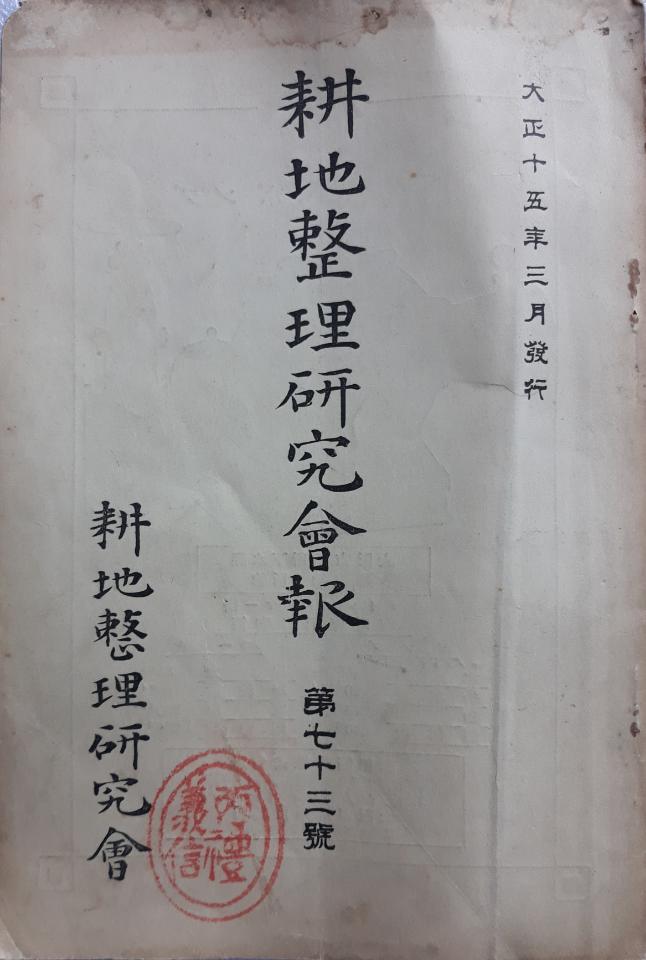 大正十五年三月發行
耕地整理研究會報
第七十三號
耕地整理研究會
禮
義信